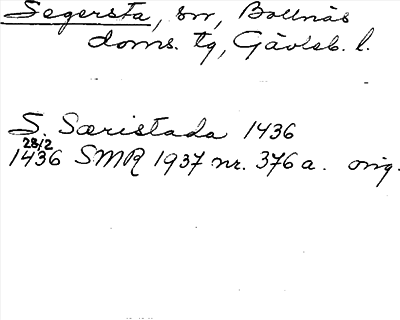 Segersta, sn, Bollnäs
doms. tg, Gävleb. l.
S. Særistada 1436
28/2
1436 SMR 1937 nr. 376a. orig.